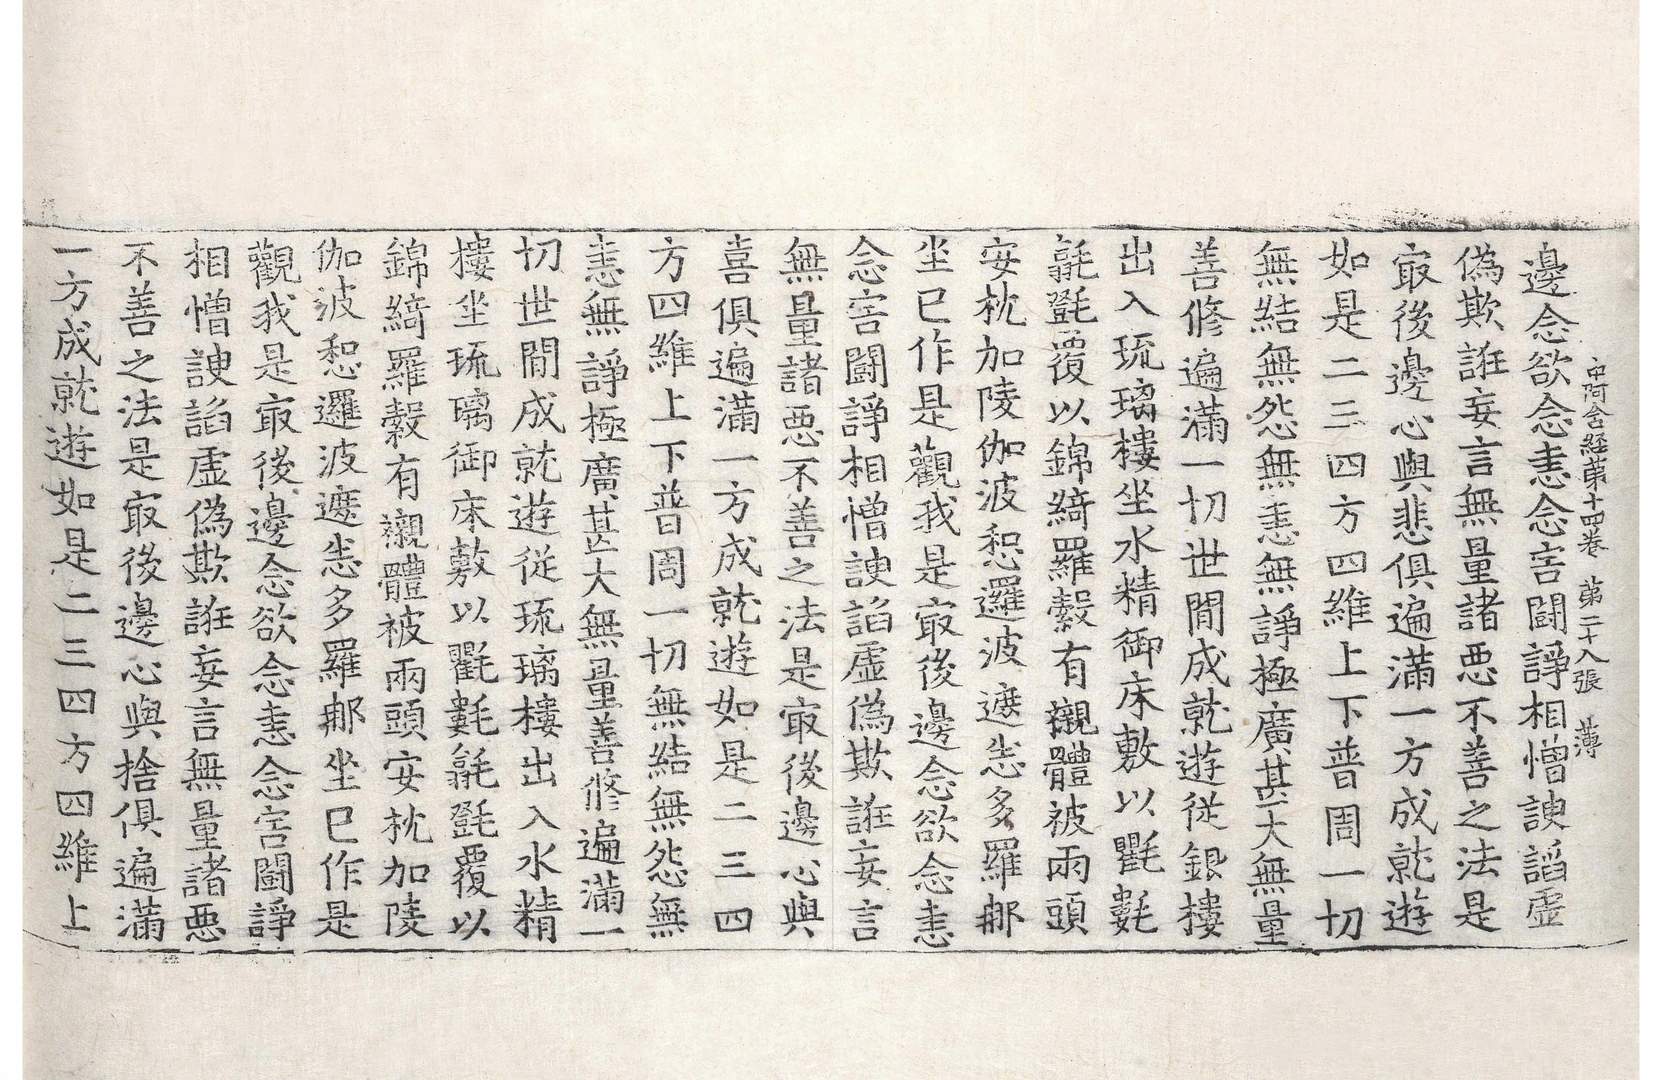 中阿含経苐十四卷 第二十八張 薄
邊念欲念恚念害鬪諍相憎諛謟虛
偽欺誑妄言無量諸惡不善之法是
㝡後邊心與悲俱遍滿一方成就遊
如是二三四方四維上下普周一切
無結無怨無恚無諍極廣甚大無量
善修遍滿一切世間成就遊從銀樓
出入琉璃樓坐水精御床敷以氍氀
毾㲪覆以錦綺羅縠有襯體被兩頭
安枕加陵伽波惒邏波遮悉多羅那
坐已作是觀我是㝡後邊念欲念恚
念害鬪諍相憎諛謟虛偽欺誑妄言
無量諸惡不善之法是㝡後邊心與
喜俱遍滿一方成就遊如是二三四
方四維上下普周一切無結無怨無
恚無諍極廣甚大無量善修遍滿一
切世間成就遊從琉璃樓出入水精
樓坐琉璃御床敷以氍氀毾㲪覆以
錦綺羅縠有襯體被兩頭安枕加陵
伽波惒邏波遮悉多羅那坐已作是
觀我是㝡後邊念欲念恚念害鬪諍
相憎諛謟虛偽欺誑妄言無量諸惡
不善之法是㝡後邊心與捨俱遍滿
一方成就遊如是二三四方四維上